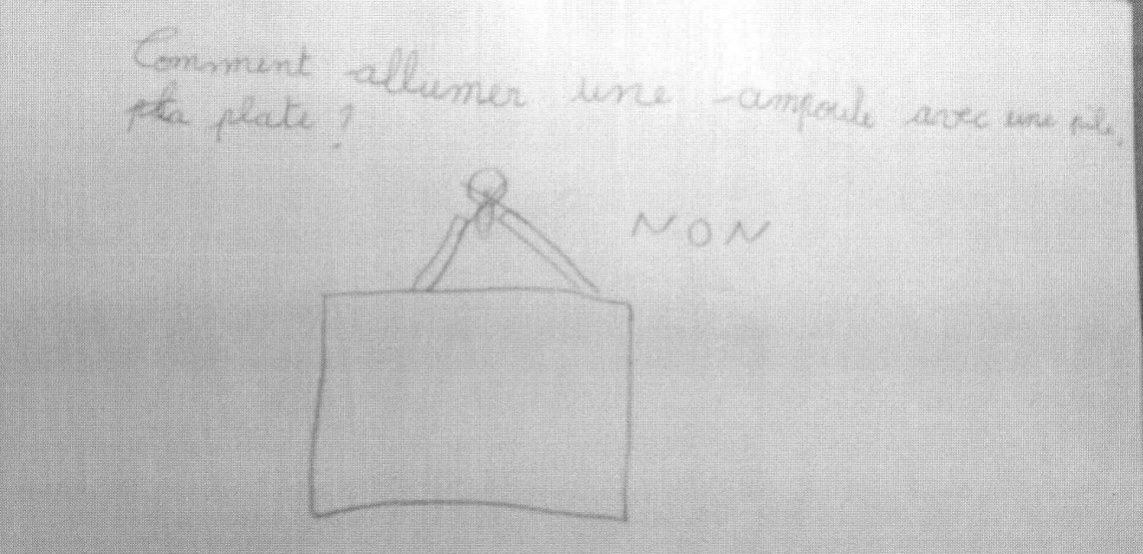 Comment allumer une ampoule avec une pile,
pla plate ?
NON